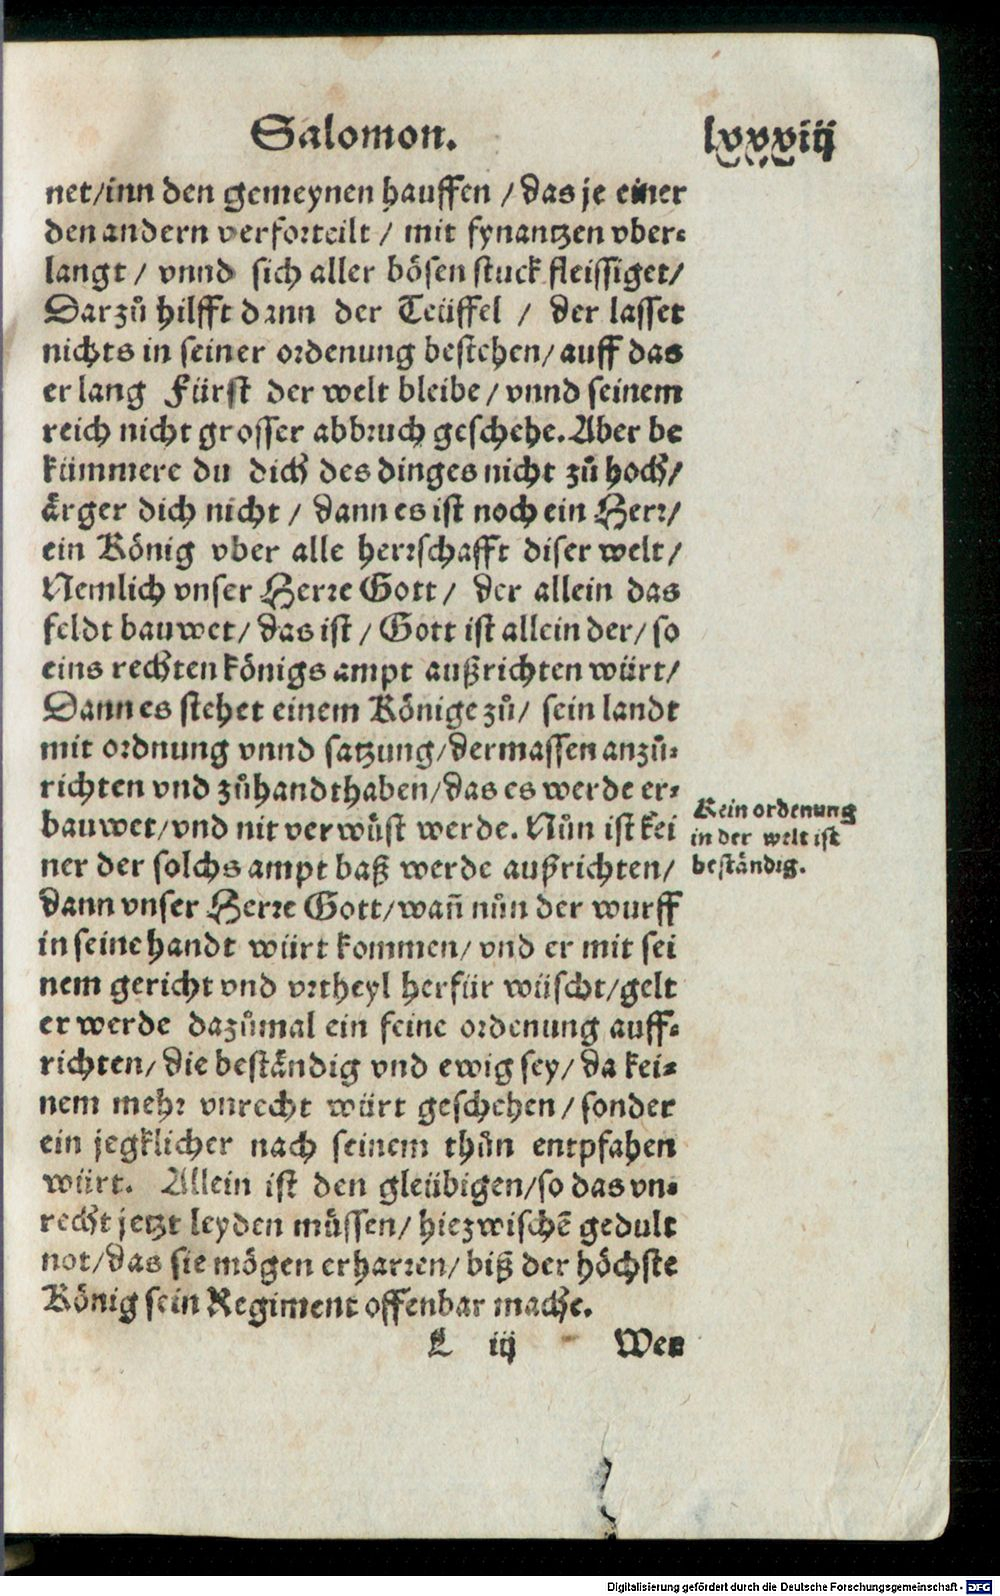 Salomon. lxxxiij
net/inn den gemeynen hauffen / das je einer
den andern verforteilt / mit fynantzen vber-
langt / vnnd sich aller bösen stuck fleissiget/
Darzů hilfft dann der Teüffel / der lasset
nichts in seiner ordenung bestehen/ auff das
er lang Fürst der welt bleibe / vnnd seinem
reich nicht grosser abbruch geschehe. Aber be
kümmere du dich des dinges nicht zů hoch/
ärger dich nicht / dann es ist noch ein Herr/
ein König vber alle herrschafft diser welt/
Nemlich vnser Herre Gott / der allein das
feldt bauwet/ das ist / Gott ist allein der/ so
eins rechten königs ampt außrichten würt/
Dann es stehet einem Könige zů/ sein landt
mit ordnung vnnd satzung/dermassen anzů-
richten vnd zůhandthaben/das es werde er-
bauwet/vnd nit verwůst werde. Nůn ist kei
ner der solchs ampt baß werde außrichten/
dann vnser Herre Gott/wañ nůn der wurff
in seine handt würt kommen/ vnd er mit sei
nem gericht vnd vrtheyl herfür wüscht/gelt
er werde dazůmal ein feine ordenung auff-
richten/ die beständig vnd ewig sey/ da kei-
nem mehr vnrecht würt geschehen / sonder
ein jegklicher nach seinem thůn entpfahen
würt. Allein ist den gleübigen/so das vn-
recht jetzt leyden müssen/ hiezwischẽ gedult
not/das sie mögen erharren/ biß der höchste
König sein Regiment offenbar mache.
Kein ordenung
in der welt ist
beständig.
L iij Wer
Digitalisierung gefördert durch die Deutsche Forschungsgemeinschaft - DFG